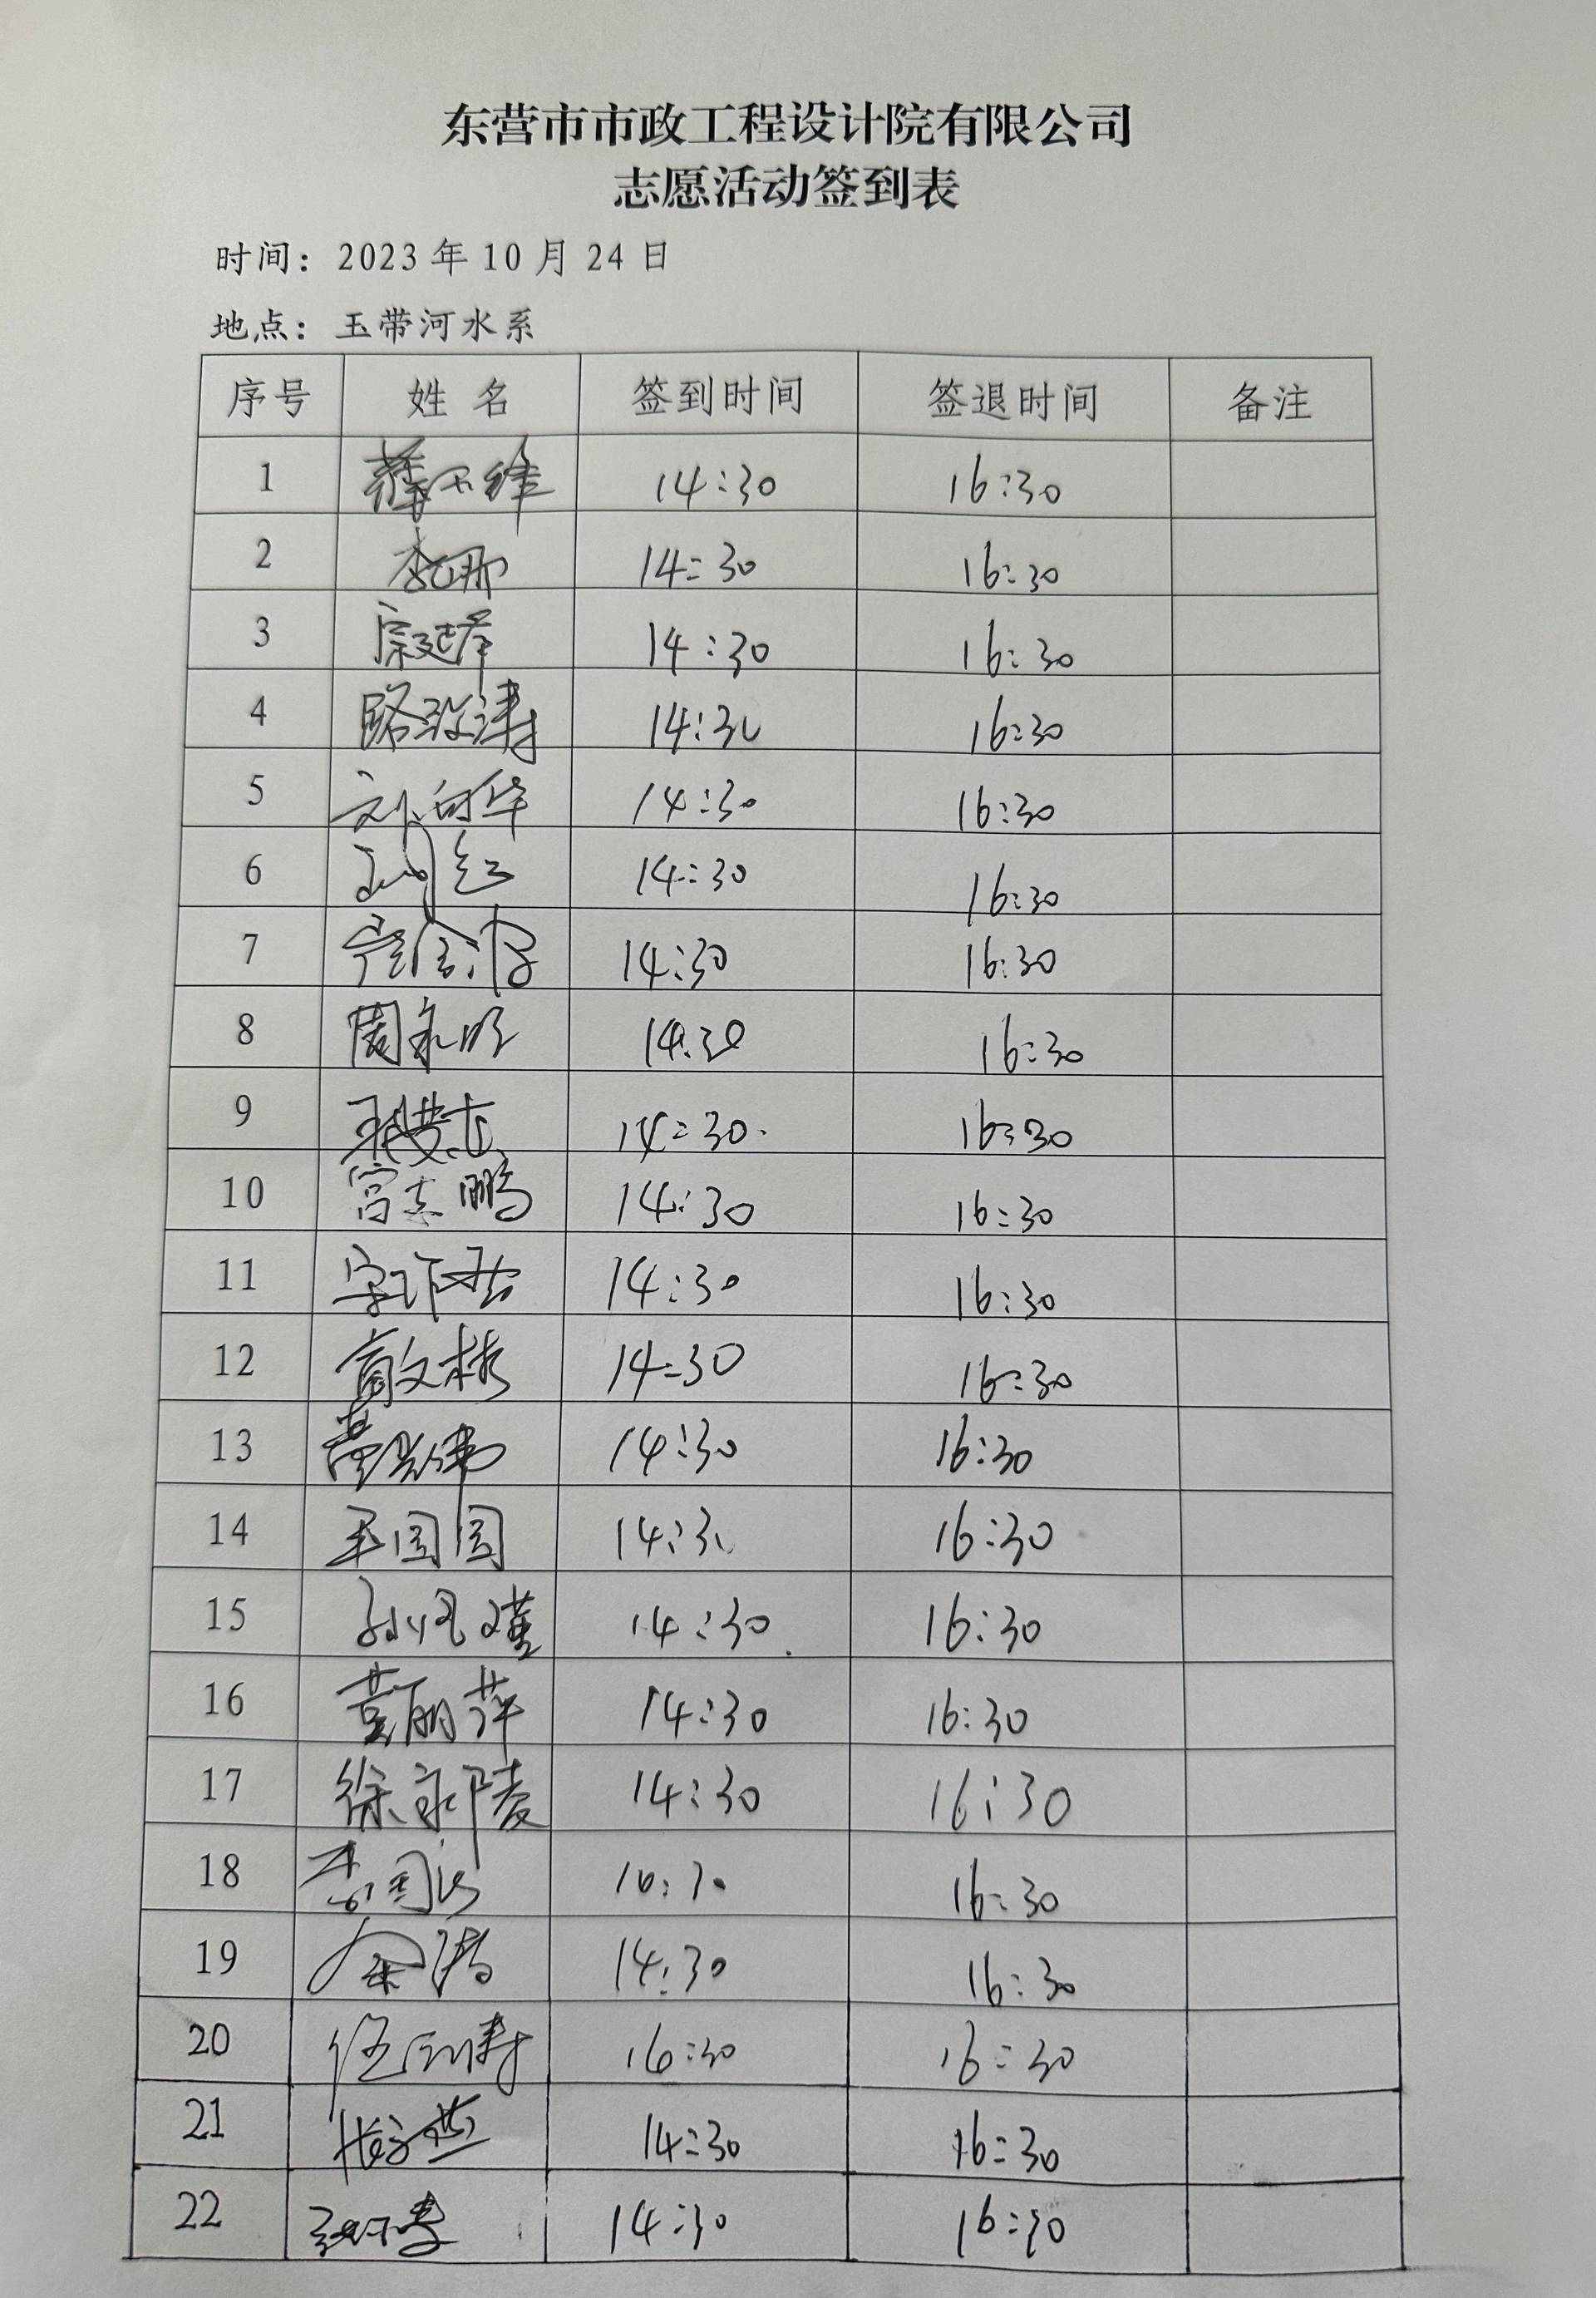 东营市市政工程设计院有限公司
志愿活动签到表
时间：2023年10月24日
地点：玉带河水系
序号 姓名 签到时间 签退时间 备注
1 14:30 16:30
2 李娜 14:30 16:30
3 14:30 16:30
4 14:30 16:30
5 刘向华 14:30 16:30
6 刘红 14:30 16:30
7 14:30 16:30
8 周永明 14:30 16:30
9 14:30 16:30
10 宫志鹏 14:30 16:30
11 14:30 16:30
12 14:30 16:30
13 14:30 16:30
14 王园园 14:30 16:30
15 14:30 16:30
16 董丽萍 14:30 16:30
17 徐永陵 14:30 16:30
18 16:30
19 14:30 16:30
20 16:30 16:30
21 14:30 16:30
22 14:30 16:30